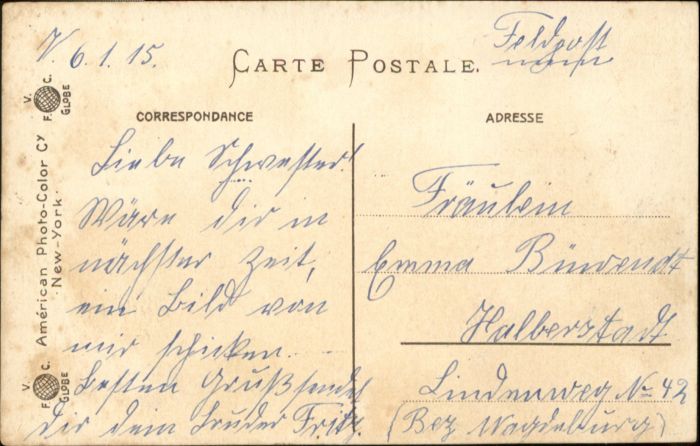 V. 6.1.15.
Feldpost
CARTE POSTALE.
CORRESPONDANCE
ADRESSE
Liebe Schwester!
Wäre dir in
nächster Zeit,
ein Bild von
mir schicken.
Besten Gruß sendet
dir dein Bruder Fritz.
Fräulein
Emma
Halberstadt
Lindenweg No 42
(Bez Magdeburg)
V.
F. C.
GLOBE
Américan Photo-Color Cy
New-York.
V.
F. C.
GLOBE